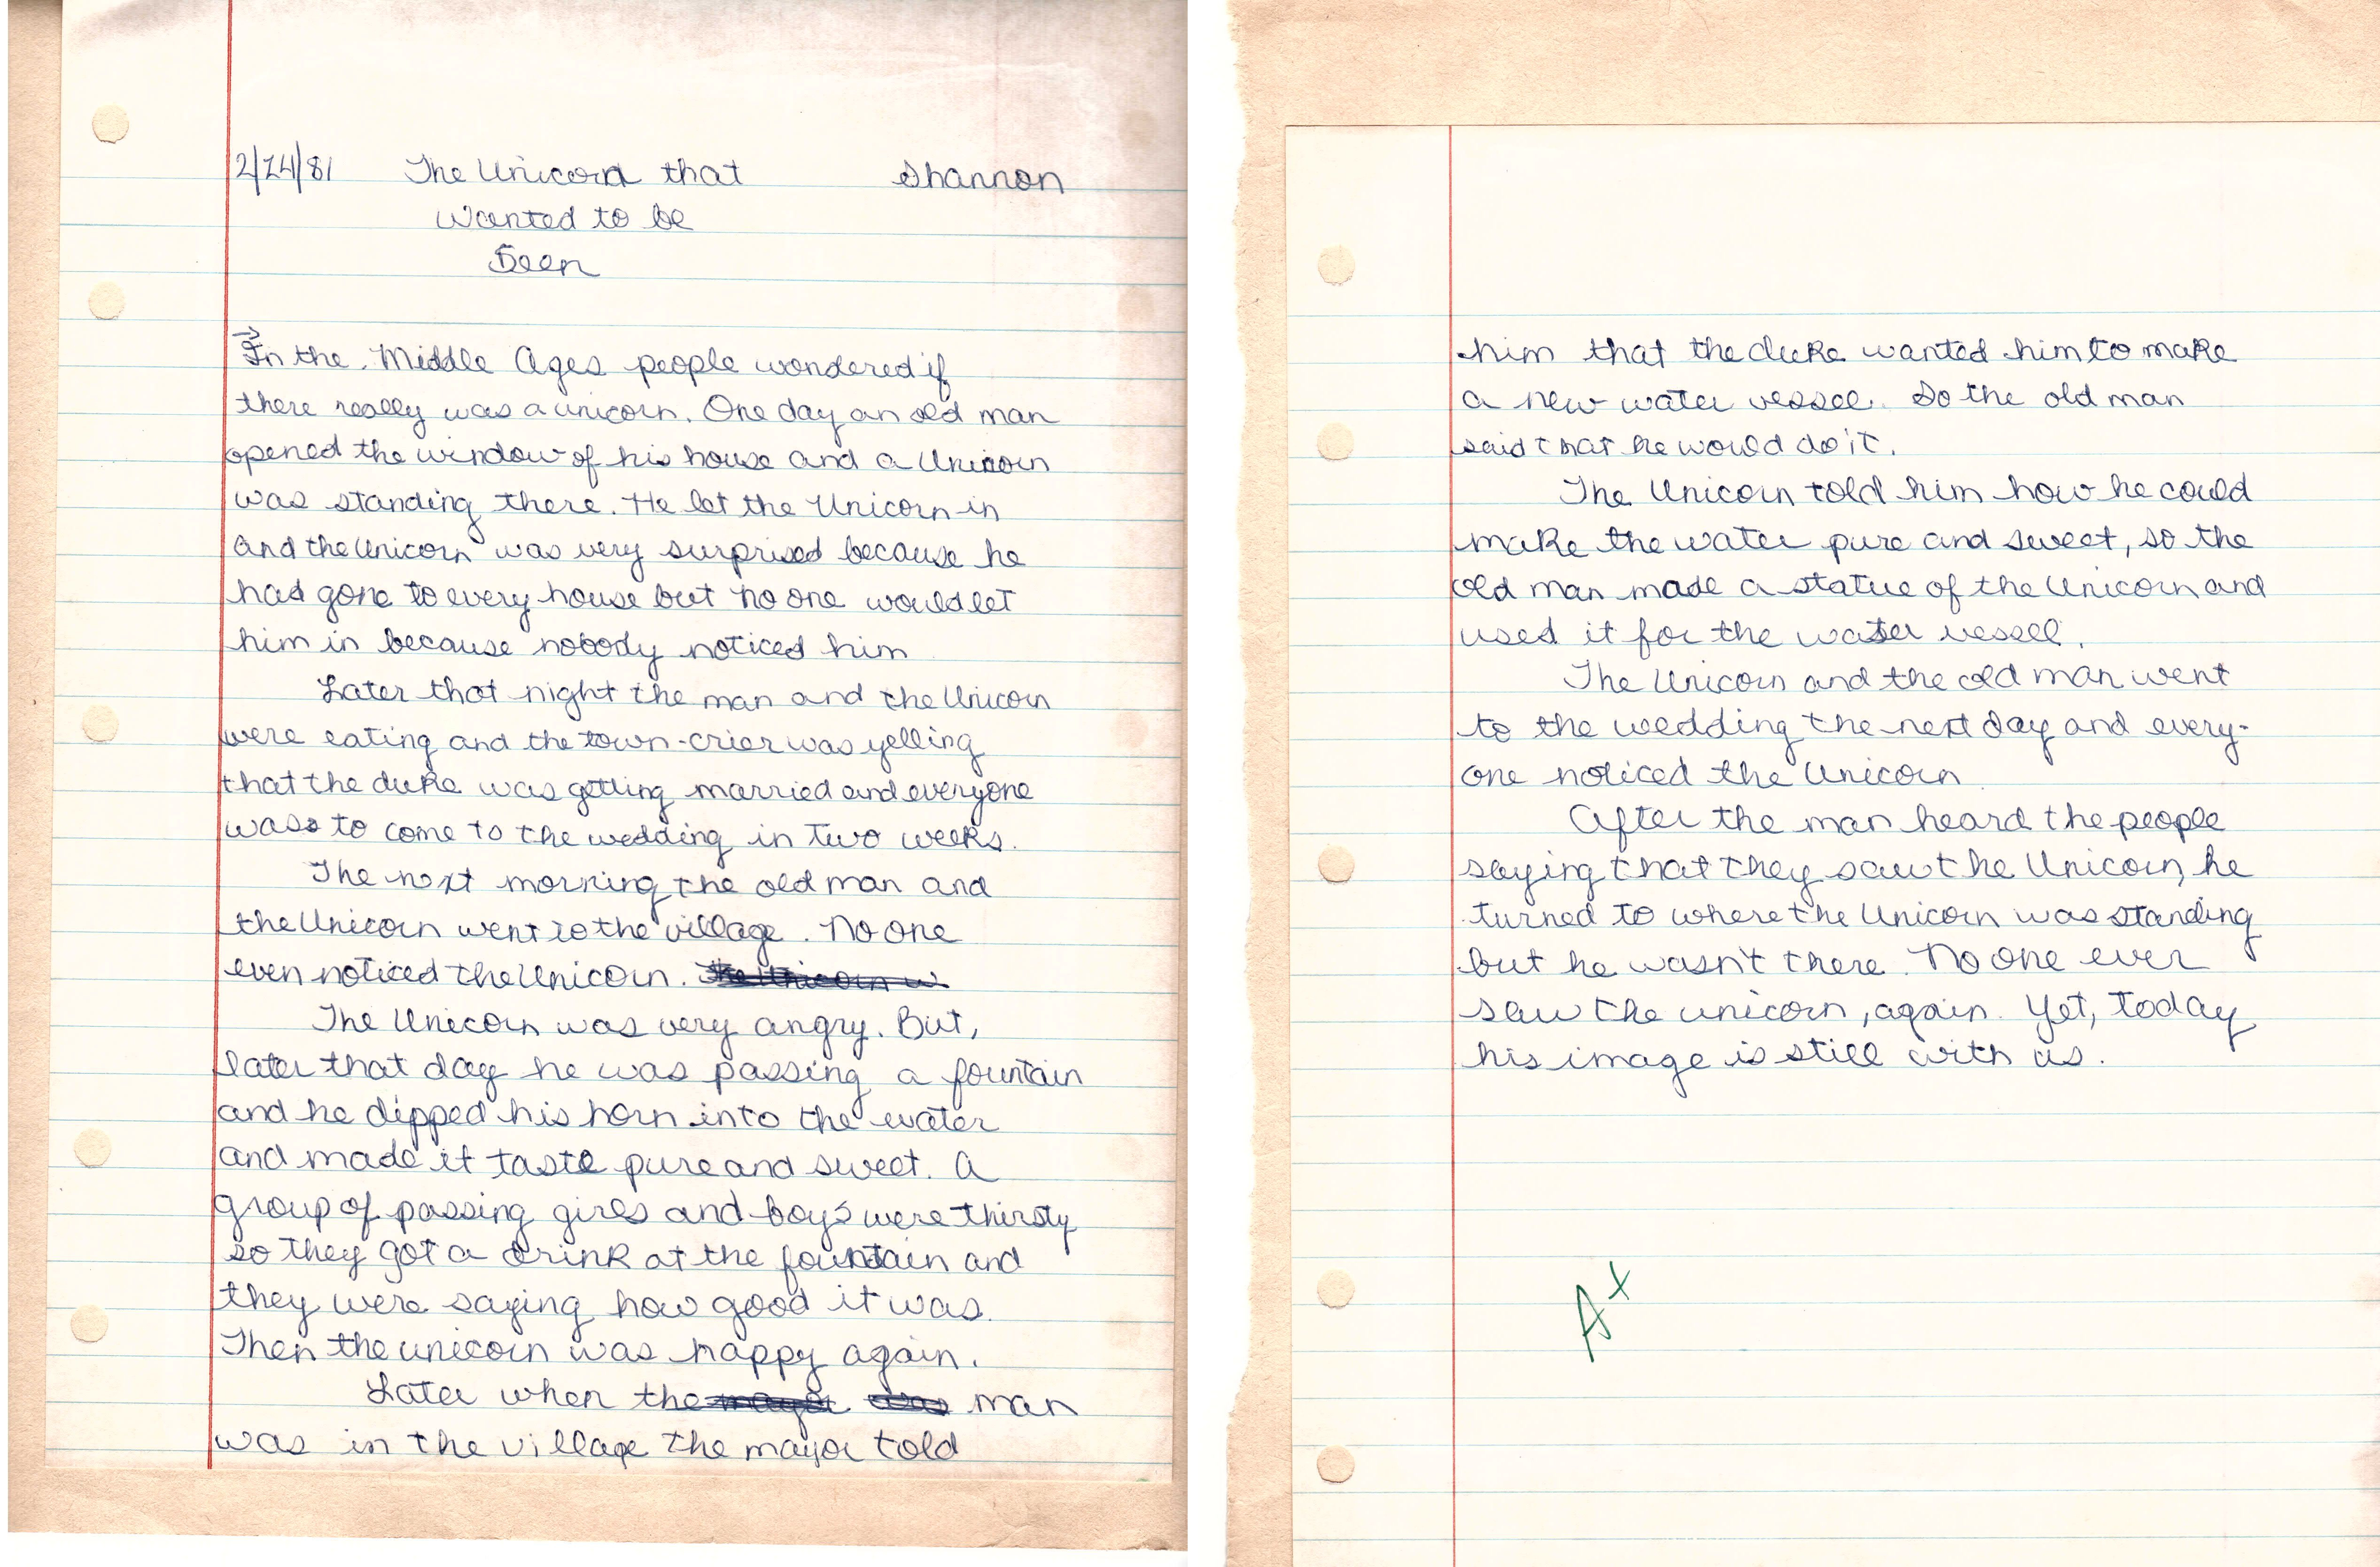 2/24/81 The Unicorn that Shannon
Wanted to be
Seen
In the Middle Ages people wondered if
there really was a unicorn. One day an old man
opened the window of his house and a Unicorn
was standing there. He let the Unicorn in
and the Unicorn was very surprised because he
had gone to every house but no one would let
him in because nobody noticed him
Later that night the man and the Unicorn
were eating and the town-crier was yelling
that the duke was getting married and everyone
was to come to the wedding in two weeks.
The next morning the old man and
the Unicorn went to the village. No one
even noticed the Unicorn. The Unicorn w
The Unicorn was very angry. But,
later that day he was passing a fountain
and he dipped his horn into the water
and made it taste pure and sweet. A
group of passing girls and boys were thirsty
so they got a drink at the fountain and
they were saying how good it was.
Then the unicorn was happy again.
Later when the mayor was man
was in the village the mayor told
him that the duke wanted him to make
a new water vessel. So the old man
said that he would do it.
The Unicorn told him how he could
make the water pure and sweet, so the
old man made a statue of the Unicorn and
used it for the water vessel.
The Unicorn and the old man went
to the wedding the next day and every-
one noticed the Unicorn
After the man heard the people
saying that they saw the Unicorn, he
turned to where the Unicorn was standing
but he wasn't there. No one ever
saw the unicorn, again. Yet, today
his image is still with us.
A+